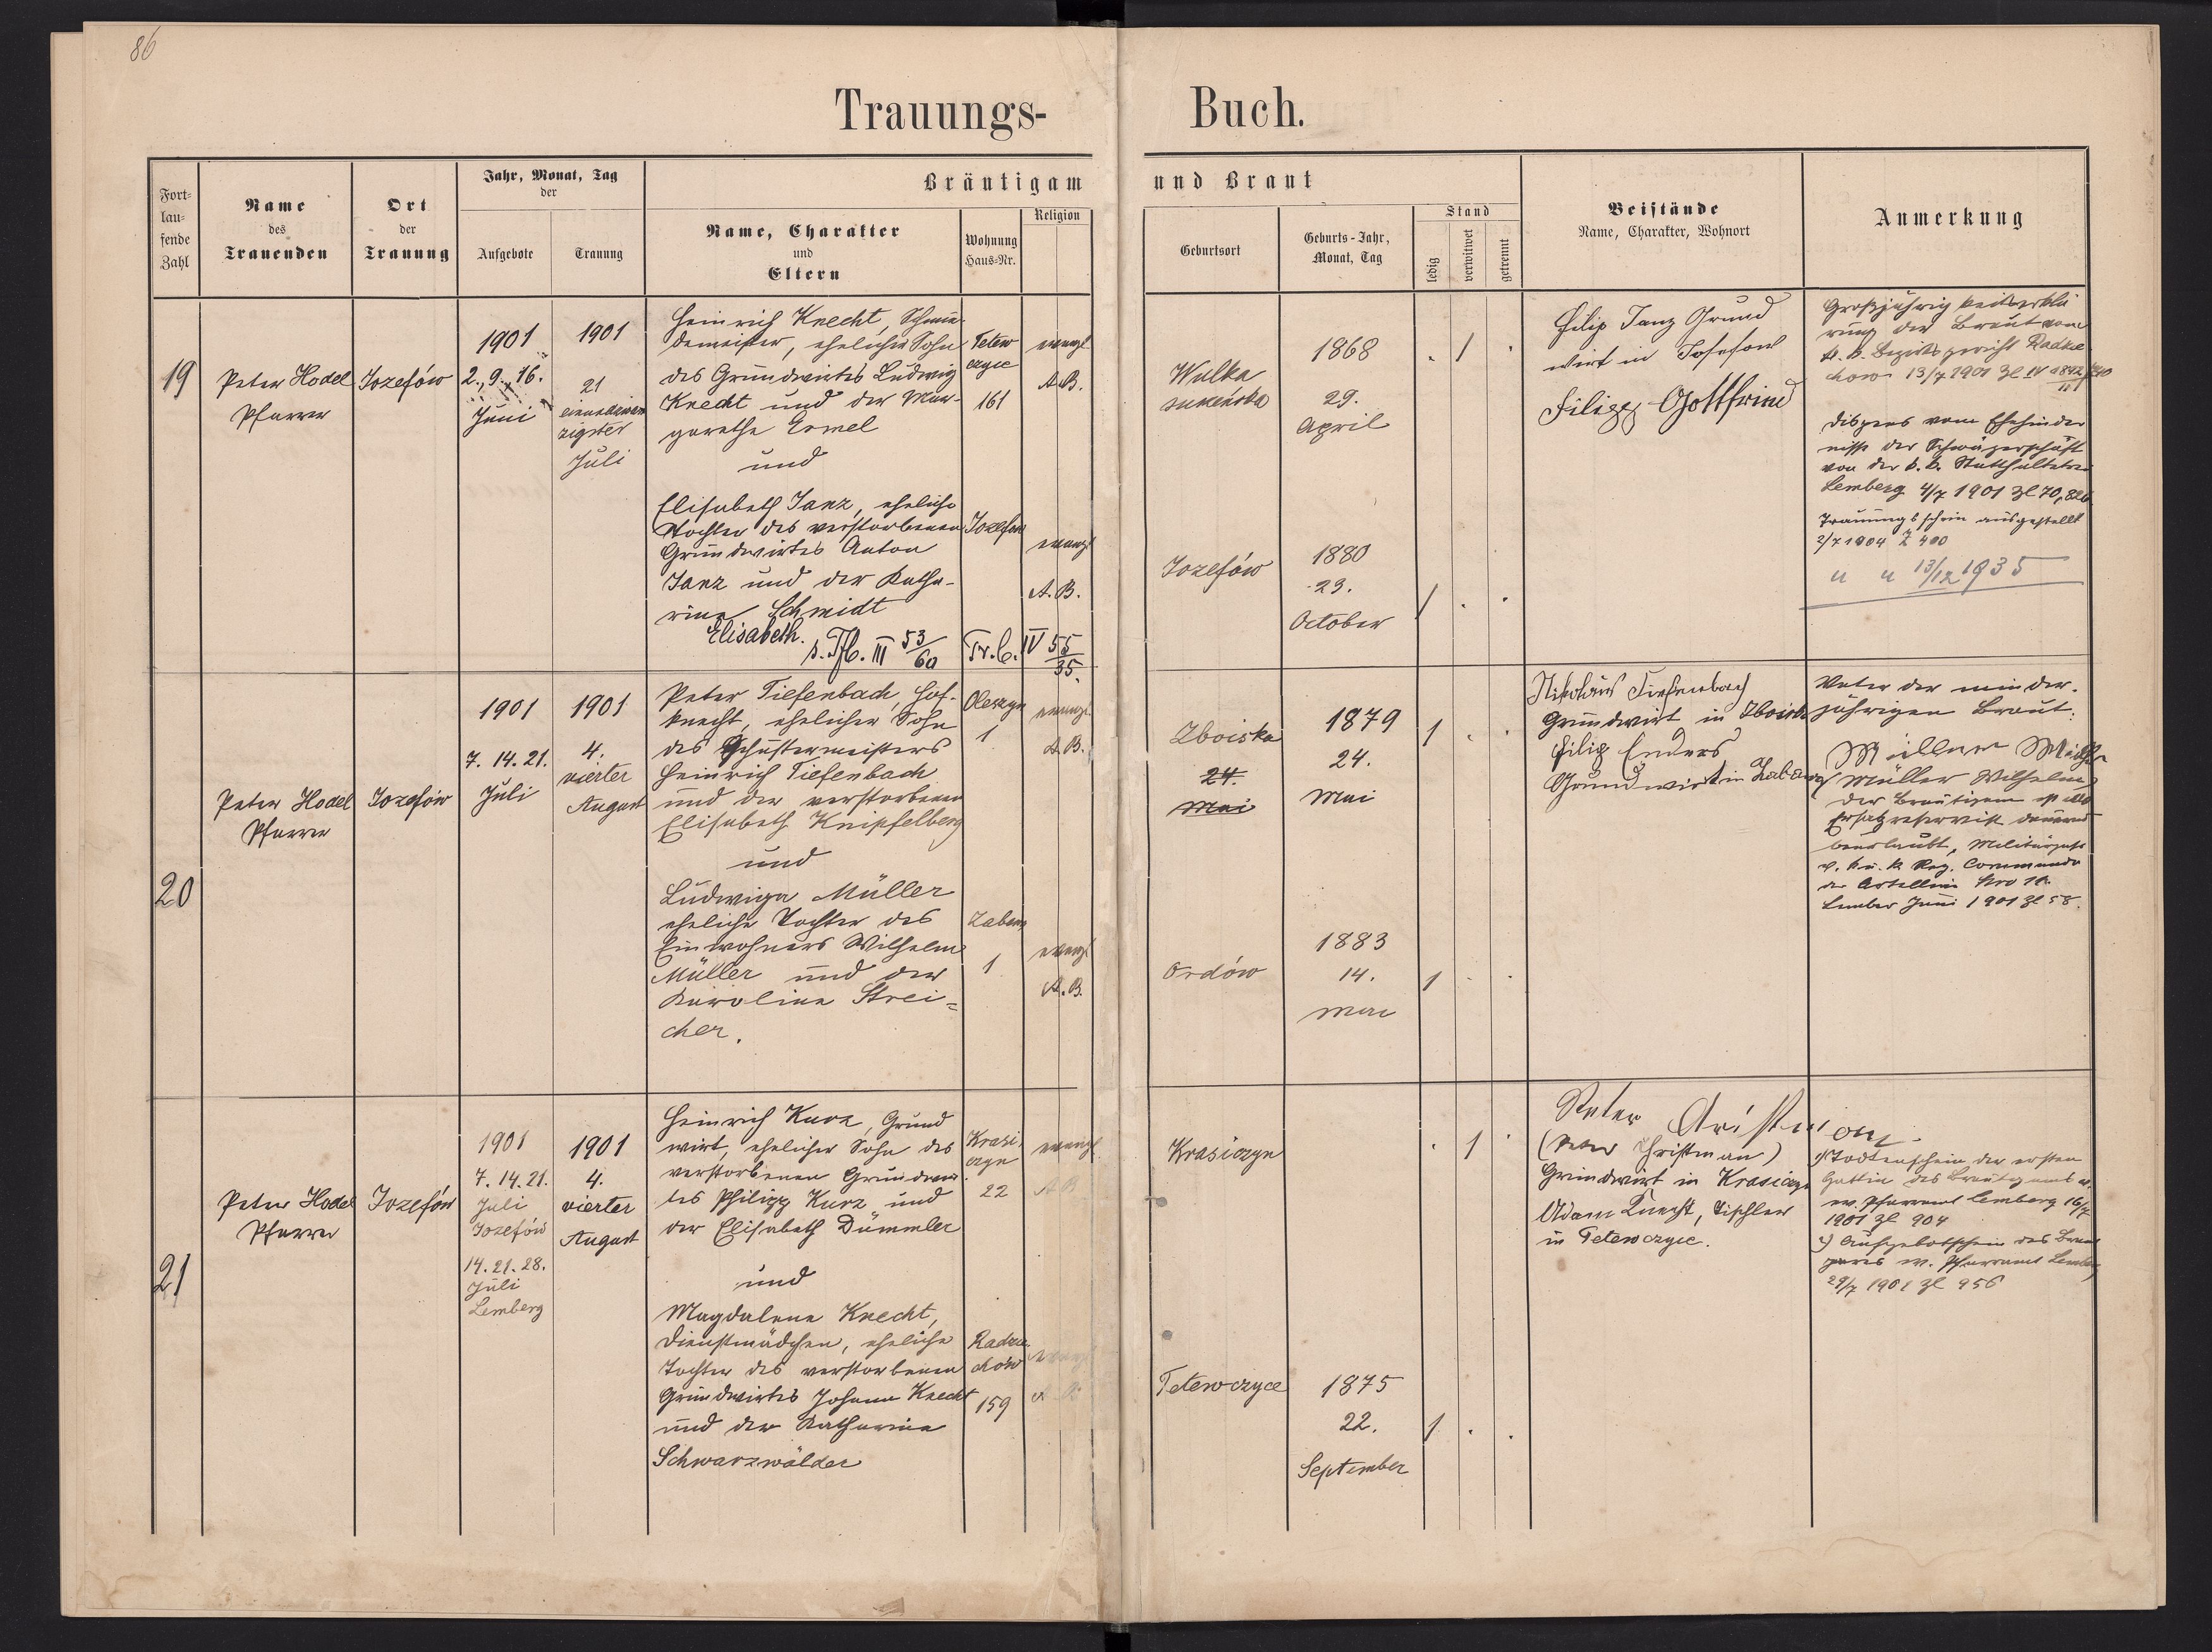 86
Trauungs- Buch.
Fort-
lau-
fende
Zahl
Name
des
Trauenden
Ort
der
Trauung
Jahr, Monat, Tag
der
Aufgebote
Trauung
Bräutigam und Braut
Name, Charakter
und
Eltern
Wohnung
Haus-Nr.
Religion
Geburtsort
Geburts-Jahr,
Monat, Tag
Stand
ledig
verwitwet
getrennt
Beistände
Name, Charakter, Wohnort
Anmerkung
19
Peter Hodel
Pfarrer
Jozefów
1901
2., 9., 16.
Juni
1901
21
einundzwan
zigster
Juli
Heinrich Knecht, Schmie-
demeister, ehelicher Sohn
des Grundwirtes Ludwig
Knecht und der Mar-
garethe Ermel
und
Elisabeth Janz, eheliche
Tochter des verstorbenen
Grundwirtes Anton
Janz und der Katha-
rina Schmidt
Elisabeth.
s. Tfb. III 53/60 Tr. b. IV 55/35.
Tetew
czyce
161
evangl
A.B.
Jozefow
evangl
A.B.
Wulka
suszeńska
1868
29.
April
. 1 .
Jozefów
1880
23.
October
1 . .
Filip Janz Grund
wirt in Josefow
Filipp Gottfried
Großjährigkeitserklä
rung der Braut vom
k. k. Bezirksgericht Radzie
chow 13/7 1901
Dispens vom Ehehinder
niss der Schwägerschaft
von der k. k. Statthalterei
Lemberg 4/7 1901 Zl 70,826
Trauungsschein ausgestellt
2/7 1904 Z 400
" " 13/12 1935
20
Peter Hodel
Pfarrer
Jozefów
1901
7. 14. 21.
Juli
1901
4.
vierter
August
Peter Tiefenbach, Hof-
knecht, ehelicher Sohn
des Schustermeisters
Heinrich Tiefenbach
und der verstorbenen
Elisabeth Knipfelberg
und
Ludwiga Müller
eheliche Tochter des
Einwohners Wilhelm
Müller und der
Karolina Strei=
cher.
Oleszyn
1
evangl.
A.B.
1
evangl
A.B.
Zboiska
24.
Mai
1879
24.
Mai
1 . .
Ordów
1883
14.
Mai
1 . .
Nikolaus Tiefenbach
Grundwirt in Zboiska
Filip Enders
Grundwirt in
Vater der minder-
jährigen Braut:
Müller Wilhelm
der Bräutigam ist als
Ersatzreservist dauernd
beurlaubt, Militärpass
1901 Zl 58.
21
Peter Hodel
Pfarrer
Jozefów
1901
7. 14. 21.
Juli
Jozefów
14. 21. 28.
Juli
Lemberg
1901
4.
vierter
August
Heinrich Kurz, Grund
wirt, ehelicher Sohn des
verstorbenen Grundwir-
tes Philipp Kurz und
der Elisabeth Dümmler
und
Magdalena Knecht,
Dienstmädchen, eheliche
Tochter des verstorbenen
Grundwirtes Johann Knecht
und der Katharina
Schwarzwälder
Krasi
czyn
22
evangl.
A.B.
Radzie
chów
159
evangl
A. B.
Krasiczyn
. 1 .
Tetewczyce
1875
22.
September
1 . .
(Peter Christman)
Grundwirt in Krasiczyn
Adam Knecht, Tischler
in Tetewczyce.
1) Todtenschein der ersten
Gattin des Bräutigams v.
ev. Pfarramt Lemberg 16/7
1901 Zl 904
2) Aufgebotschein des Braut
paares ev. Pfarramt Lemberg
29/7 1901 Zl 956